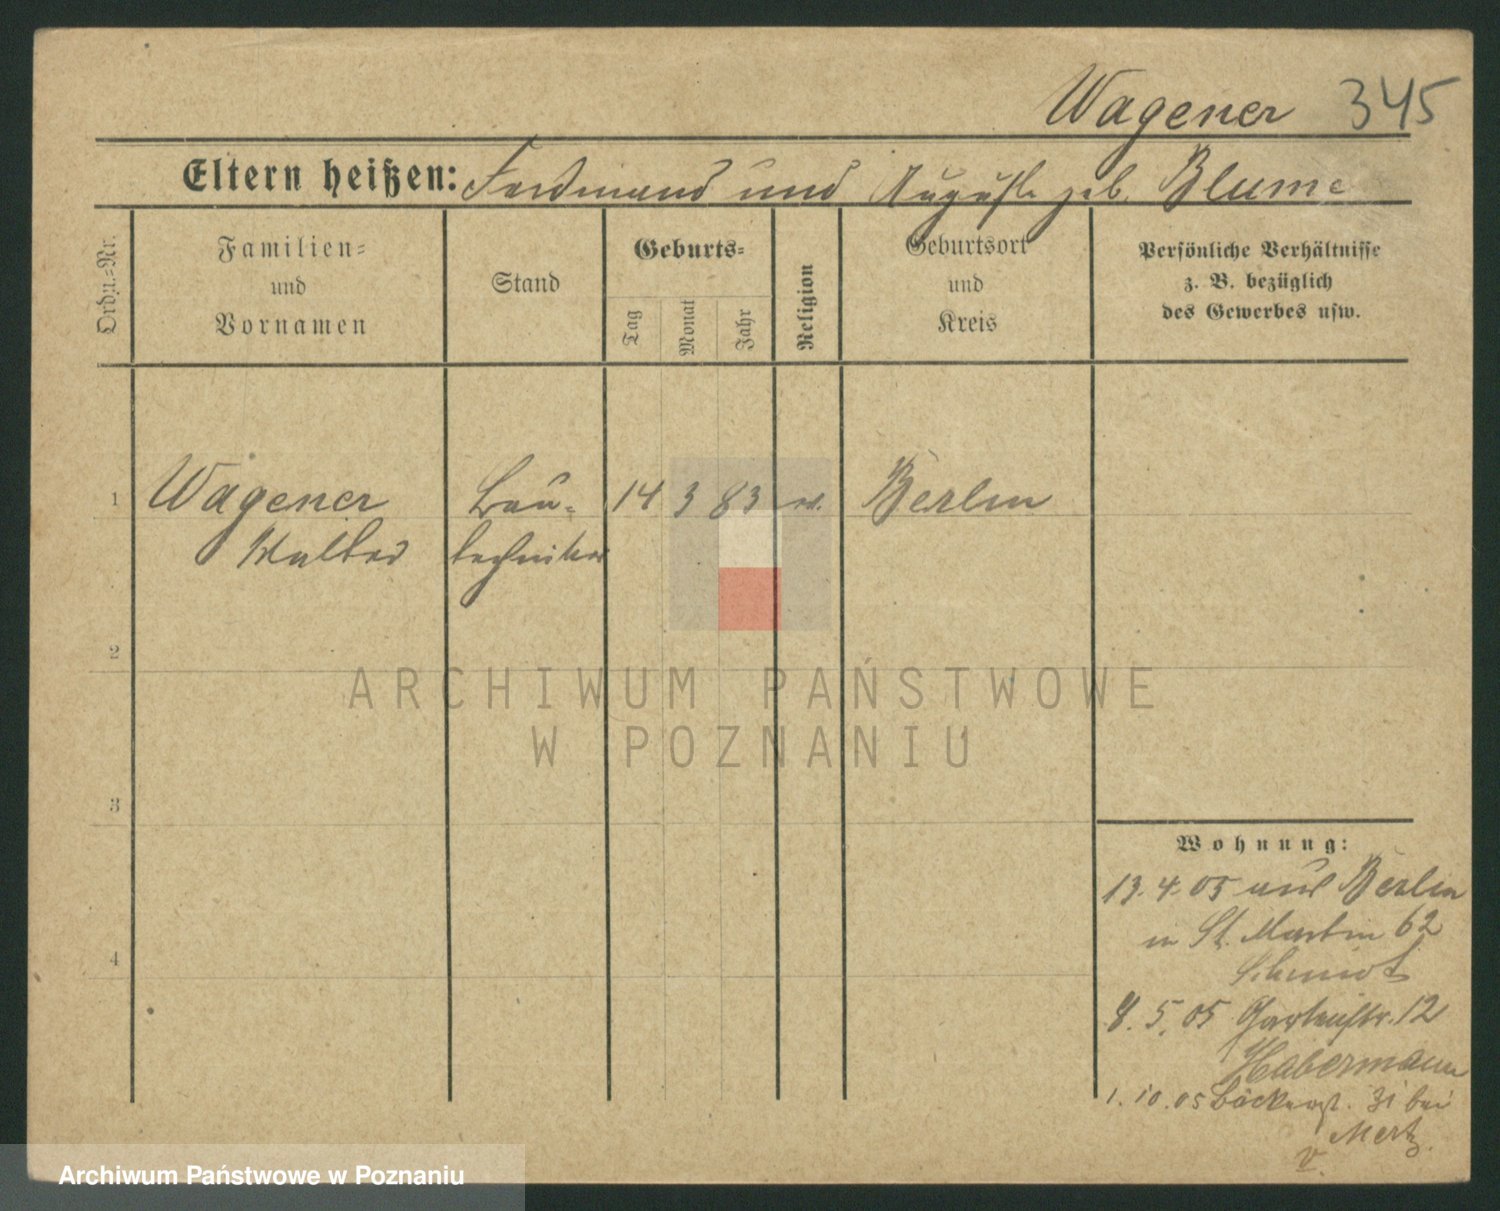 Wagener 345
Eltern heißen: Ferdinand und Auguste geb. Blume
Ordn.=Nr.
Familien=
und
Vornamen
Stand
Geburts=
Tag
Monat
Jahr
Religion
Geburtsort
und
Kreis
Persönliche Verhältnisse
z. B. bezüglich
des Gewerbes usw.
1 Wagener Bau- 14 3 83 Berlin
Walter techniker
2
3
4
Wohnung:
13.4.05 aus Berlin
in St. Martin 62
Schmidt
8.5.05 Gartenstr. 12
Habermann
1.10.05 Bäckerst. 31 bei
Mertz.
ARCHIWUM PAŃSTWOWE
W POZNANIU
Archiwum Państwowe w Poznaniu